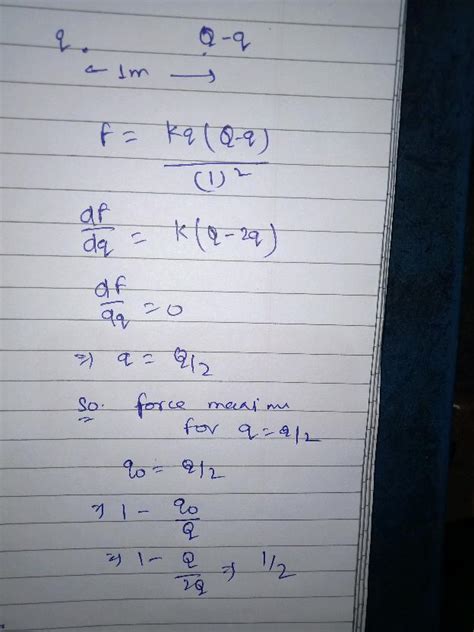 q . Q-q
← 1m →
F = kq(Q-q)
(1)²
dF
dq = K(Q-2q)
dF
dq = 0
⇒ q = Q/2
So. force maximu
for q = Q/2
q₀ = Q/2
⇒ 1 - q₀
Q
⇒ 1 - Q
2Q ⇒ 1/2